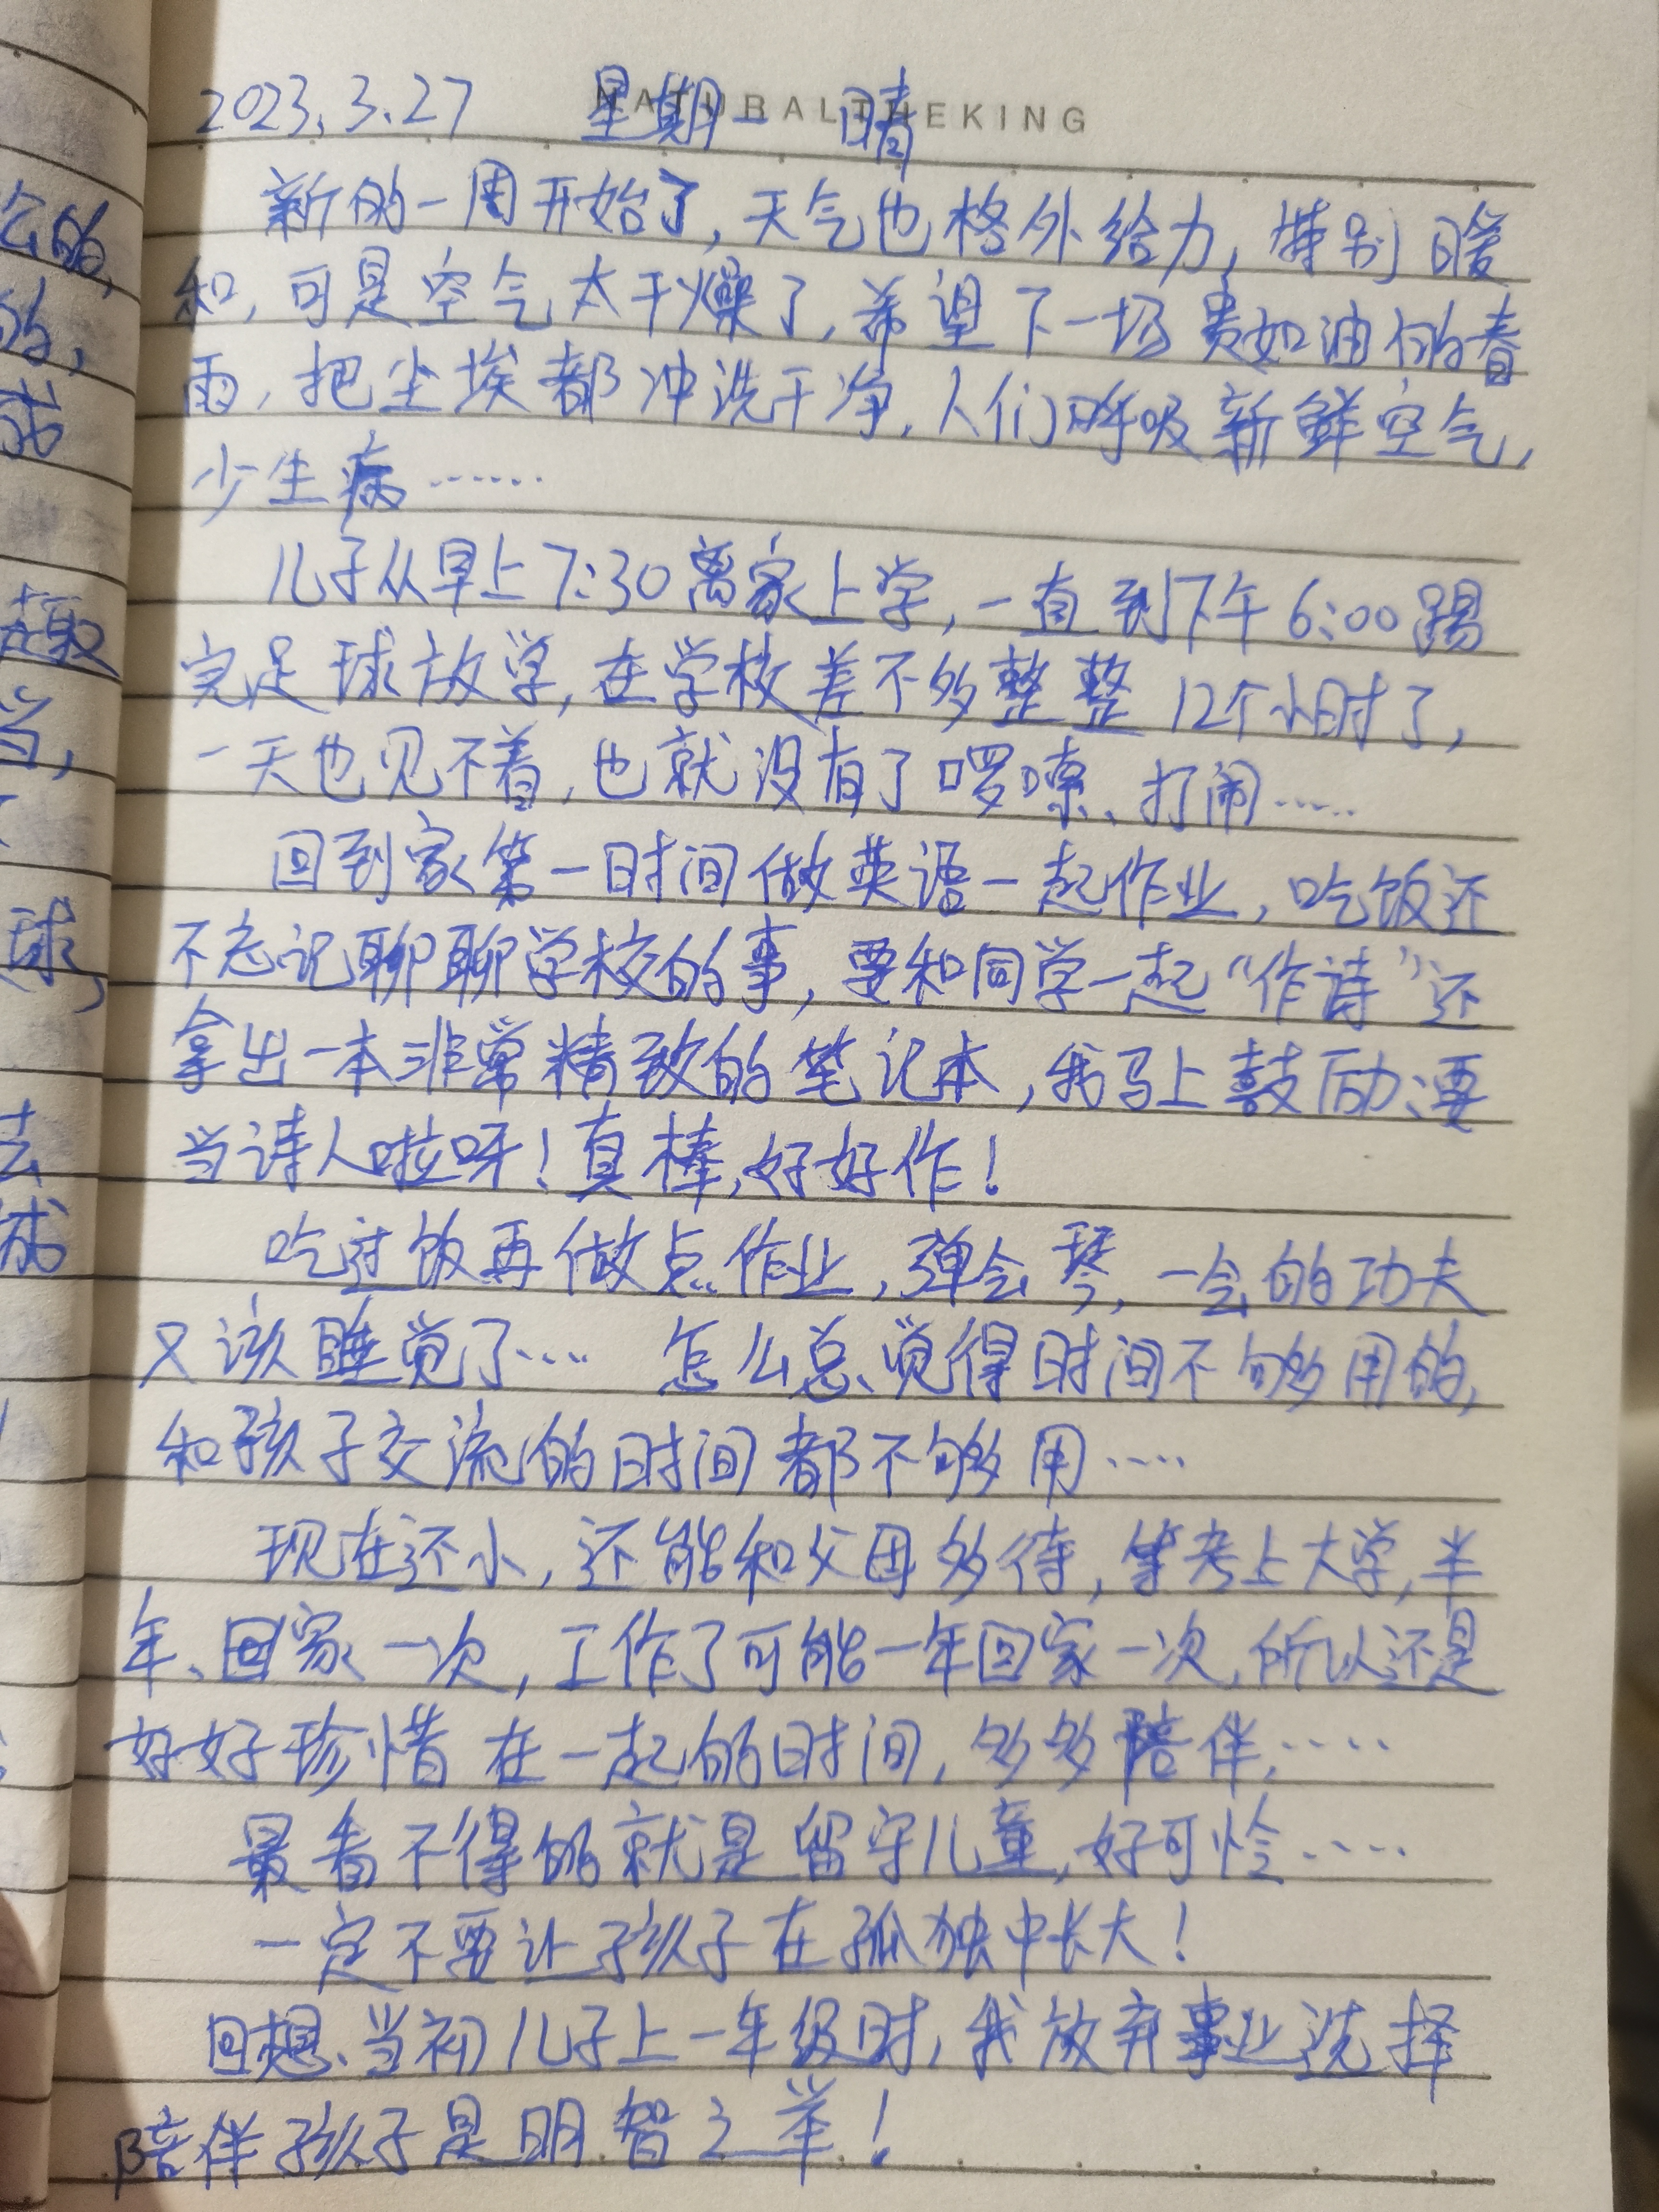 NATURALTHEKING
2023.3.27 星期一 晴
新的一周开始了,天气也格外给力,特别暖
和,可是空气太干燥了,希望下一场贵如油的春
雨,把尘埃都冲洗干净,人们呼吸新鲜空气,
少生病……
儿子从早上7:30离家上学,一直到下午6:00踢
完足球放学,在学校差不多整整12个小时了,
一天也见不着,也就没有了啰嗦、打闹……
回到家第一时间做英语一起作业,吃饭还
不忘记聊聊学校的事,要和同学一起“作诗”还
拿出一本非常精致的笔记本,我马上鼓励:要
当诗人啦呀!真棒,好好作!
吃过饭再做点作业,弹会琴,一会的功夫
又该睡觉了… 怎么总觉得时间不够用的,
和孩子交流的时间都不够用……
现在还小,还能和父母多待,等考上大学,半
年、回家一次,工作了可能一年回家一次,所以还是
好好珍惜在一起的时间,多多陪伴,……
最看不得的就是留守儿童,好可怜……
一定不要让孩子在孤独中长大!
回想、当初儿子上一年级时,我放弃事业选择
陪伴孩子是明智之举!
么的,
的,
成
趣
当,
球,
去
成